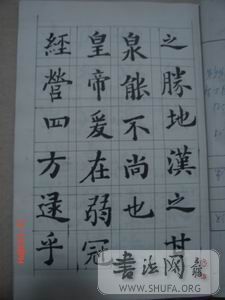 之勝地漢之甘
泉能不尚也
皇帝爰在弱冠
經營四方逮乎
书法网
WWW.SHUFA.ORG